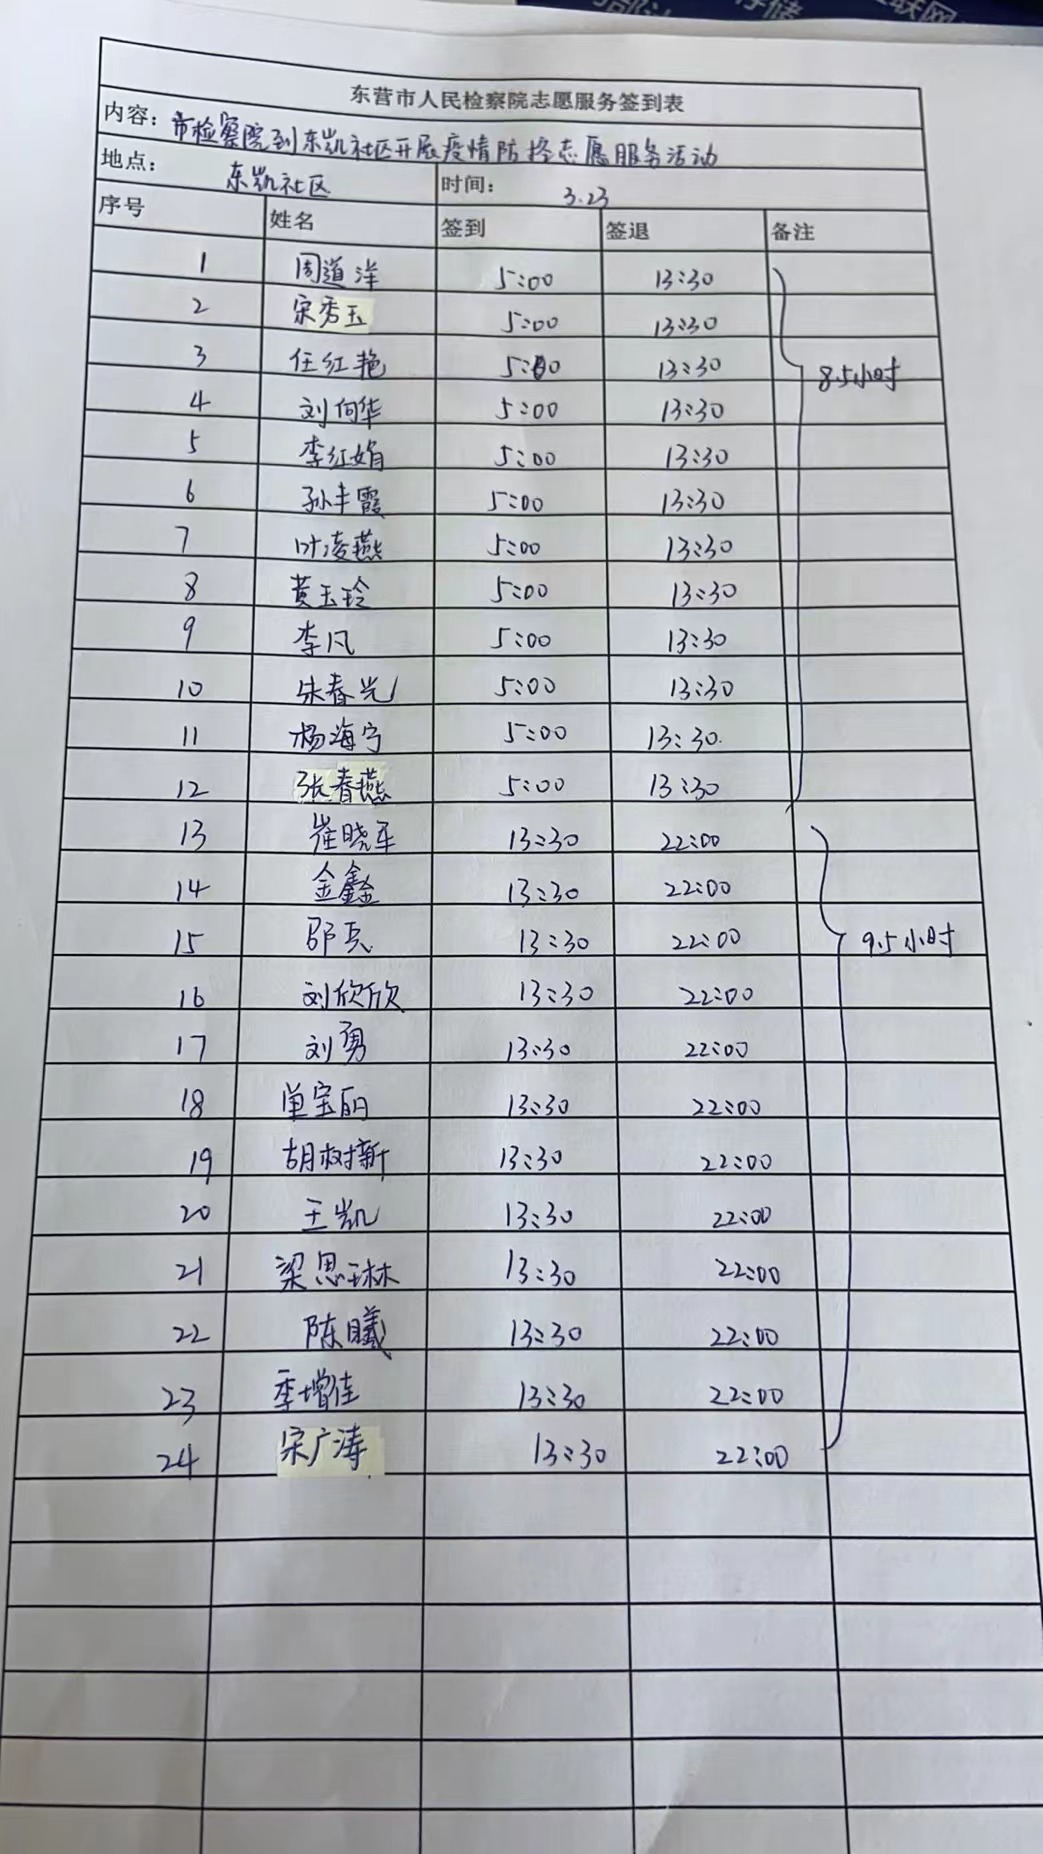 东营市人民检察院志愿服务签到表
内容：市检察院到东凯社区开展疫情防控志愿服务活动
地点：东凯社区 时间：3.23
序号 姓名 签到 签退 备注
1 周道洋 5:00 13:30
2 宋秀玉 5:00 13:30
3 任红艳 5:00 13:30 8.5小时
4 刘向华 5:00 13:30
5 李红娟 5:00 13:30
6 孙丰霞 5:00 13:30
7 叶凌燕 5:00 13:30
8 黄玉玲 5:00 13:30
9 李凡 5:00 13:30
10 朱春光 5:00 13:30
11 杨海宁 5:00 13:30
12 张春燕 5:00 13:30
13 崔晓军 13:30 22:00
14 金鑫 13:30 22:00
15 邵兵 13:30 22:00 9.5小时
16 刘欣欣 13:30 22:00
17 刘勇 13:30 22:00
18 单宝丽 13:30 22:00
19 胡树新 13:30 22:00
20 王凯 13:30 22:00
21 梁思琳 13:30 22:00
22 陈曦 13:30 22:00
23 季增佳 13:30 22:00
24 宋广涛 13:30 22:00